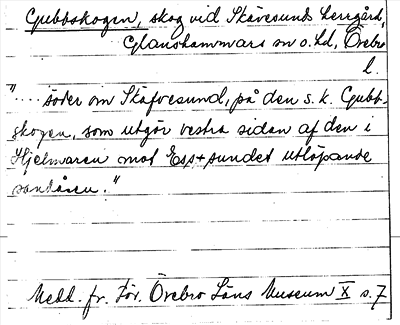 Gubbskogen, skog vid Skävesunds herrgård,
Glanshammars sn o. hd, Örebro
l.
"....söder om Skäfvesund, på den s.k. Gubb-
skogen, som utgör vestra sidan af den i
Hjelmaren mot Ess+sundet utlöpande
sandåsen."
Medd. fr. För. Örebro Läns Museum X s. 7